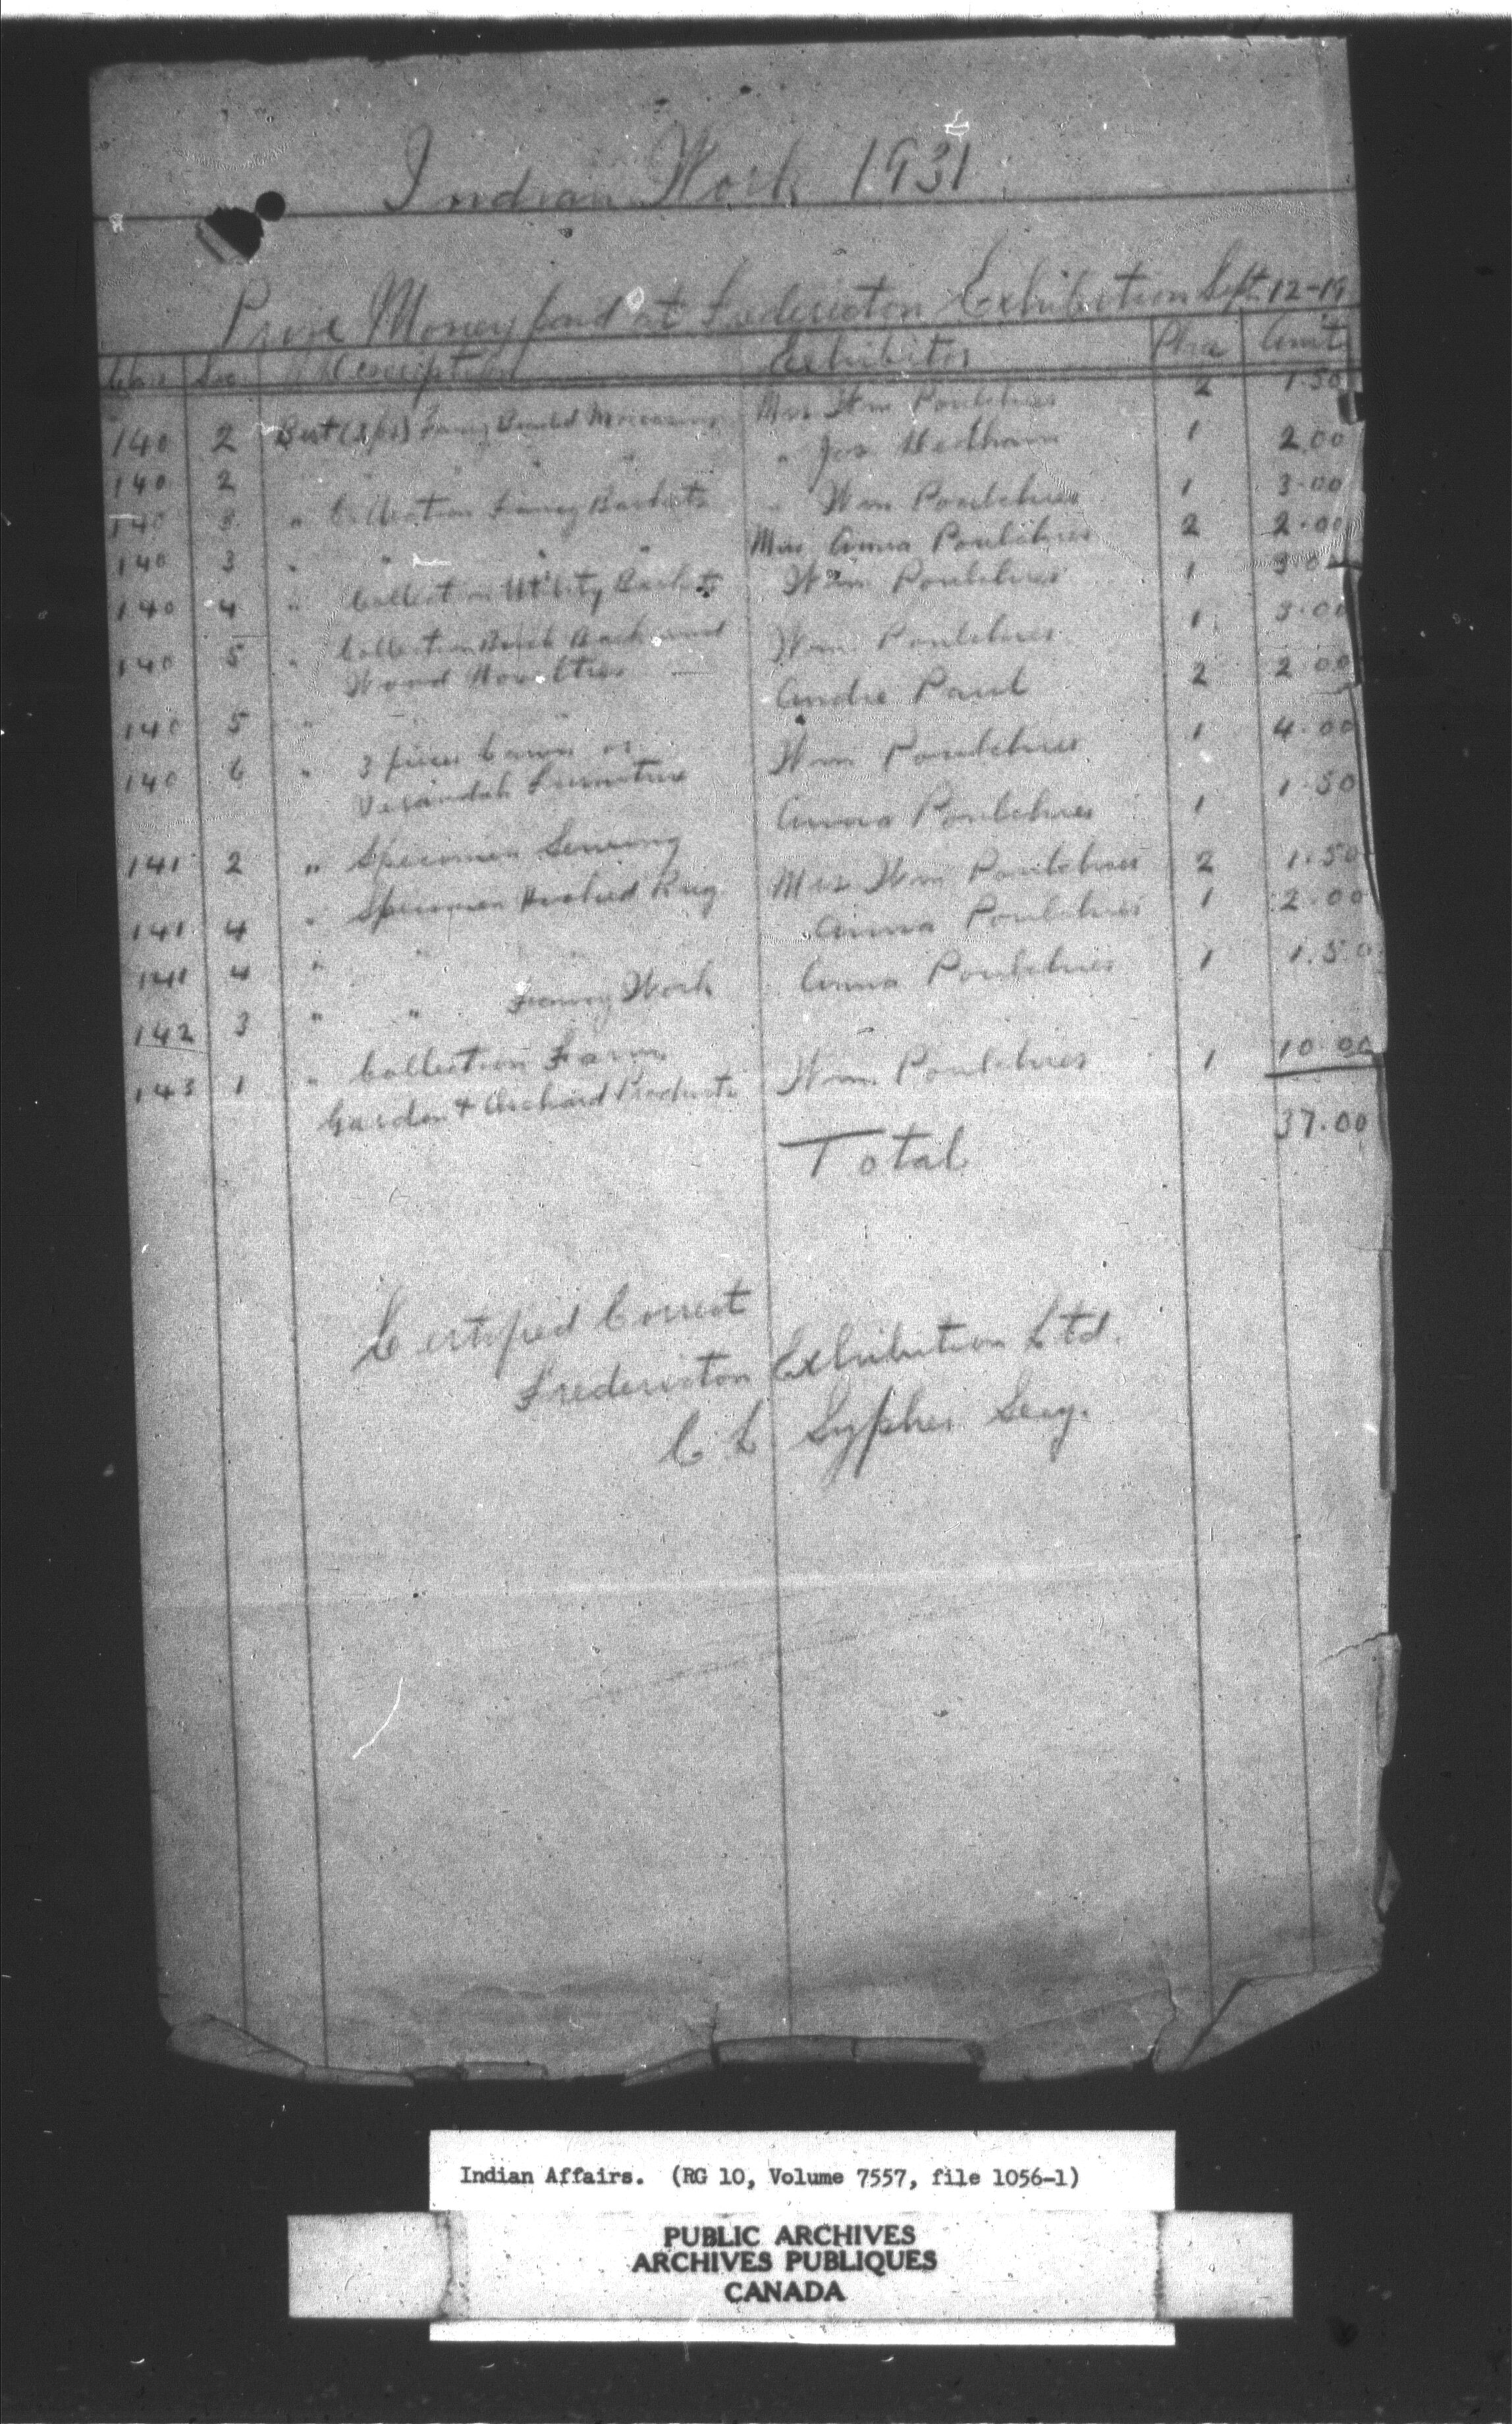 Indian Work 1931
Prize Money paid at Fredericton Exhibition Sept. 12-19
Class Sec Description Exhibitor Place Amt
140 2 Best (3 prs) Fancy Beaded Moccasins Mrs Wm Poulchies 2 1.50
140 2 " " " " " Jos 1 2.00
140 3 " Collection Fancy Baskets " Wm Poulchies 1 3.00
140 3 " " " " Miss Anna Poulchies 2 2.00
140 4 " Collection Utility Baskets Wm Poulchies 1 3.0
140 5 " Collection Birch Bark and Wm Poulchies 1 3.00
Wood Novelties
140 5 " Andre Paul 2 2.00
140 6 " 3 pieces or Wm Poulchies 1 4.00
Verandah Furniture
141 2 " Specimen Sewing Anna Poulchies 1 1.50
141 4 " Specimen Hooked Rug Mrs Wm Poulchies 2 1.50
141 4 " " Anna Poulchies 1 2.00
142 3 " " Fancy Work Anna Poulchies 1 1.50
143 1 " Collection Farm Wm Poulchies 1 10.00
Garden & Orchard Products
Total 37.00
Certified Correct
Fredericton Exhibition Ltd.
C L Sypher Secy.
Indian Affairs. (RG 10, Volume 7557, file 1056-1)
PUBLIC ARCHIVES
ARCHIVES PUBLIQUES
CANADA